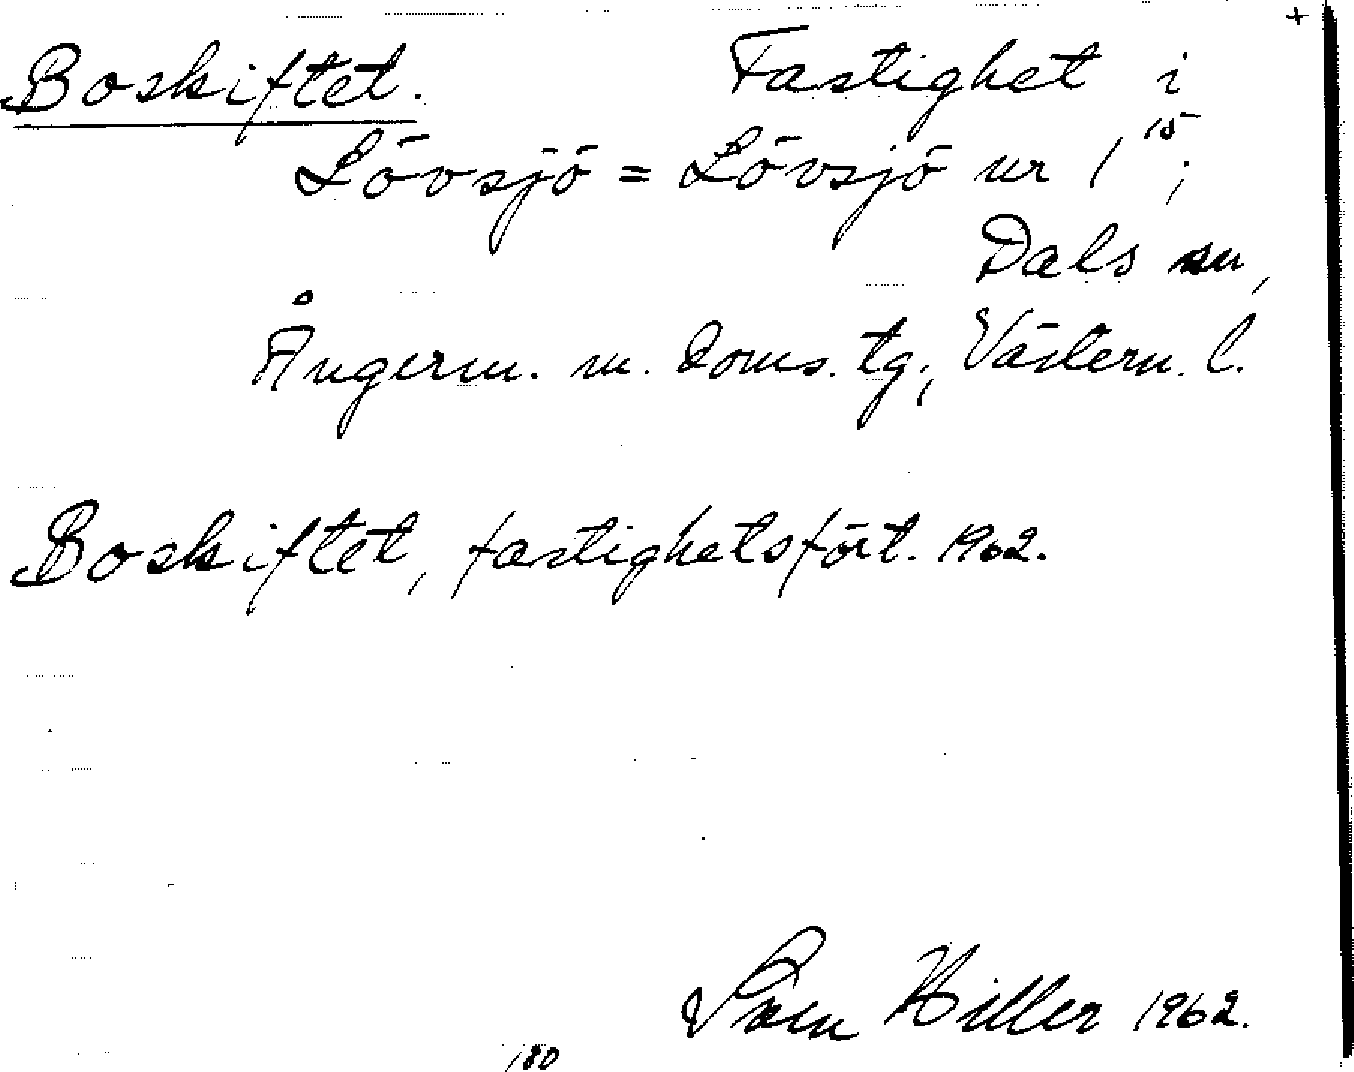 +
Boskiftet. Fastighet i
Lövsjö = Lövsjö nr 1¹⁵;
Dals sn,
Ångerm. m. doms. tg; Västern. l.
Boskiftet, fastighetsfört. 1962.
Sven Hiller 1962.
180